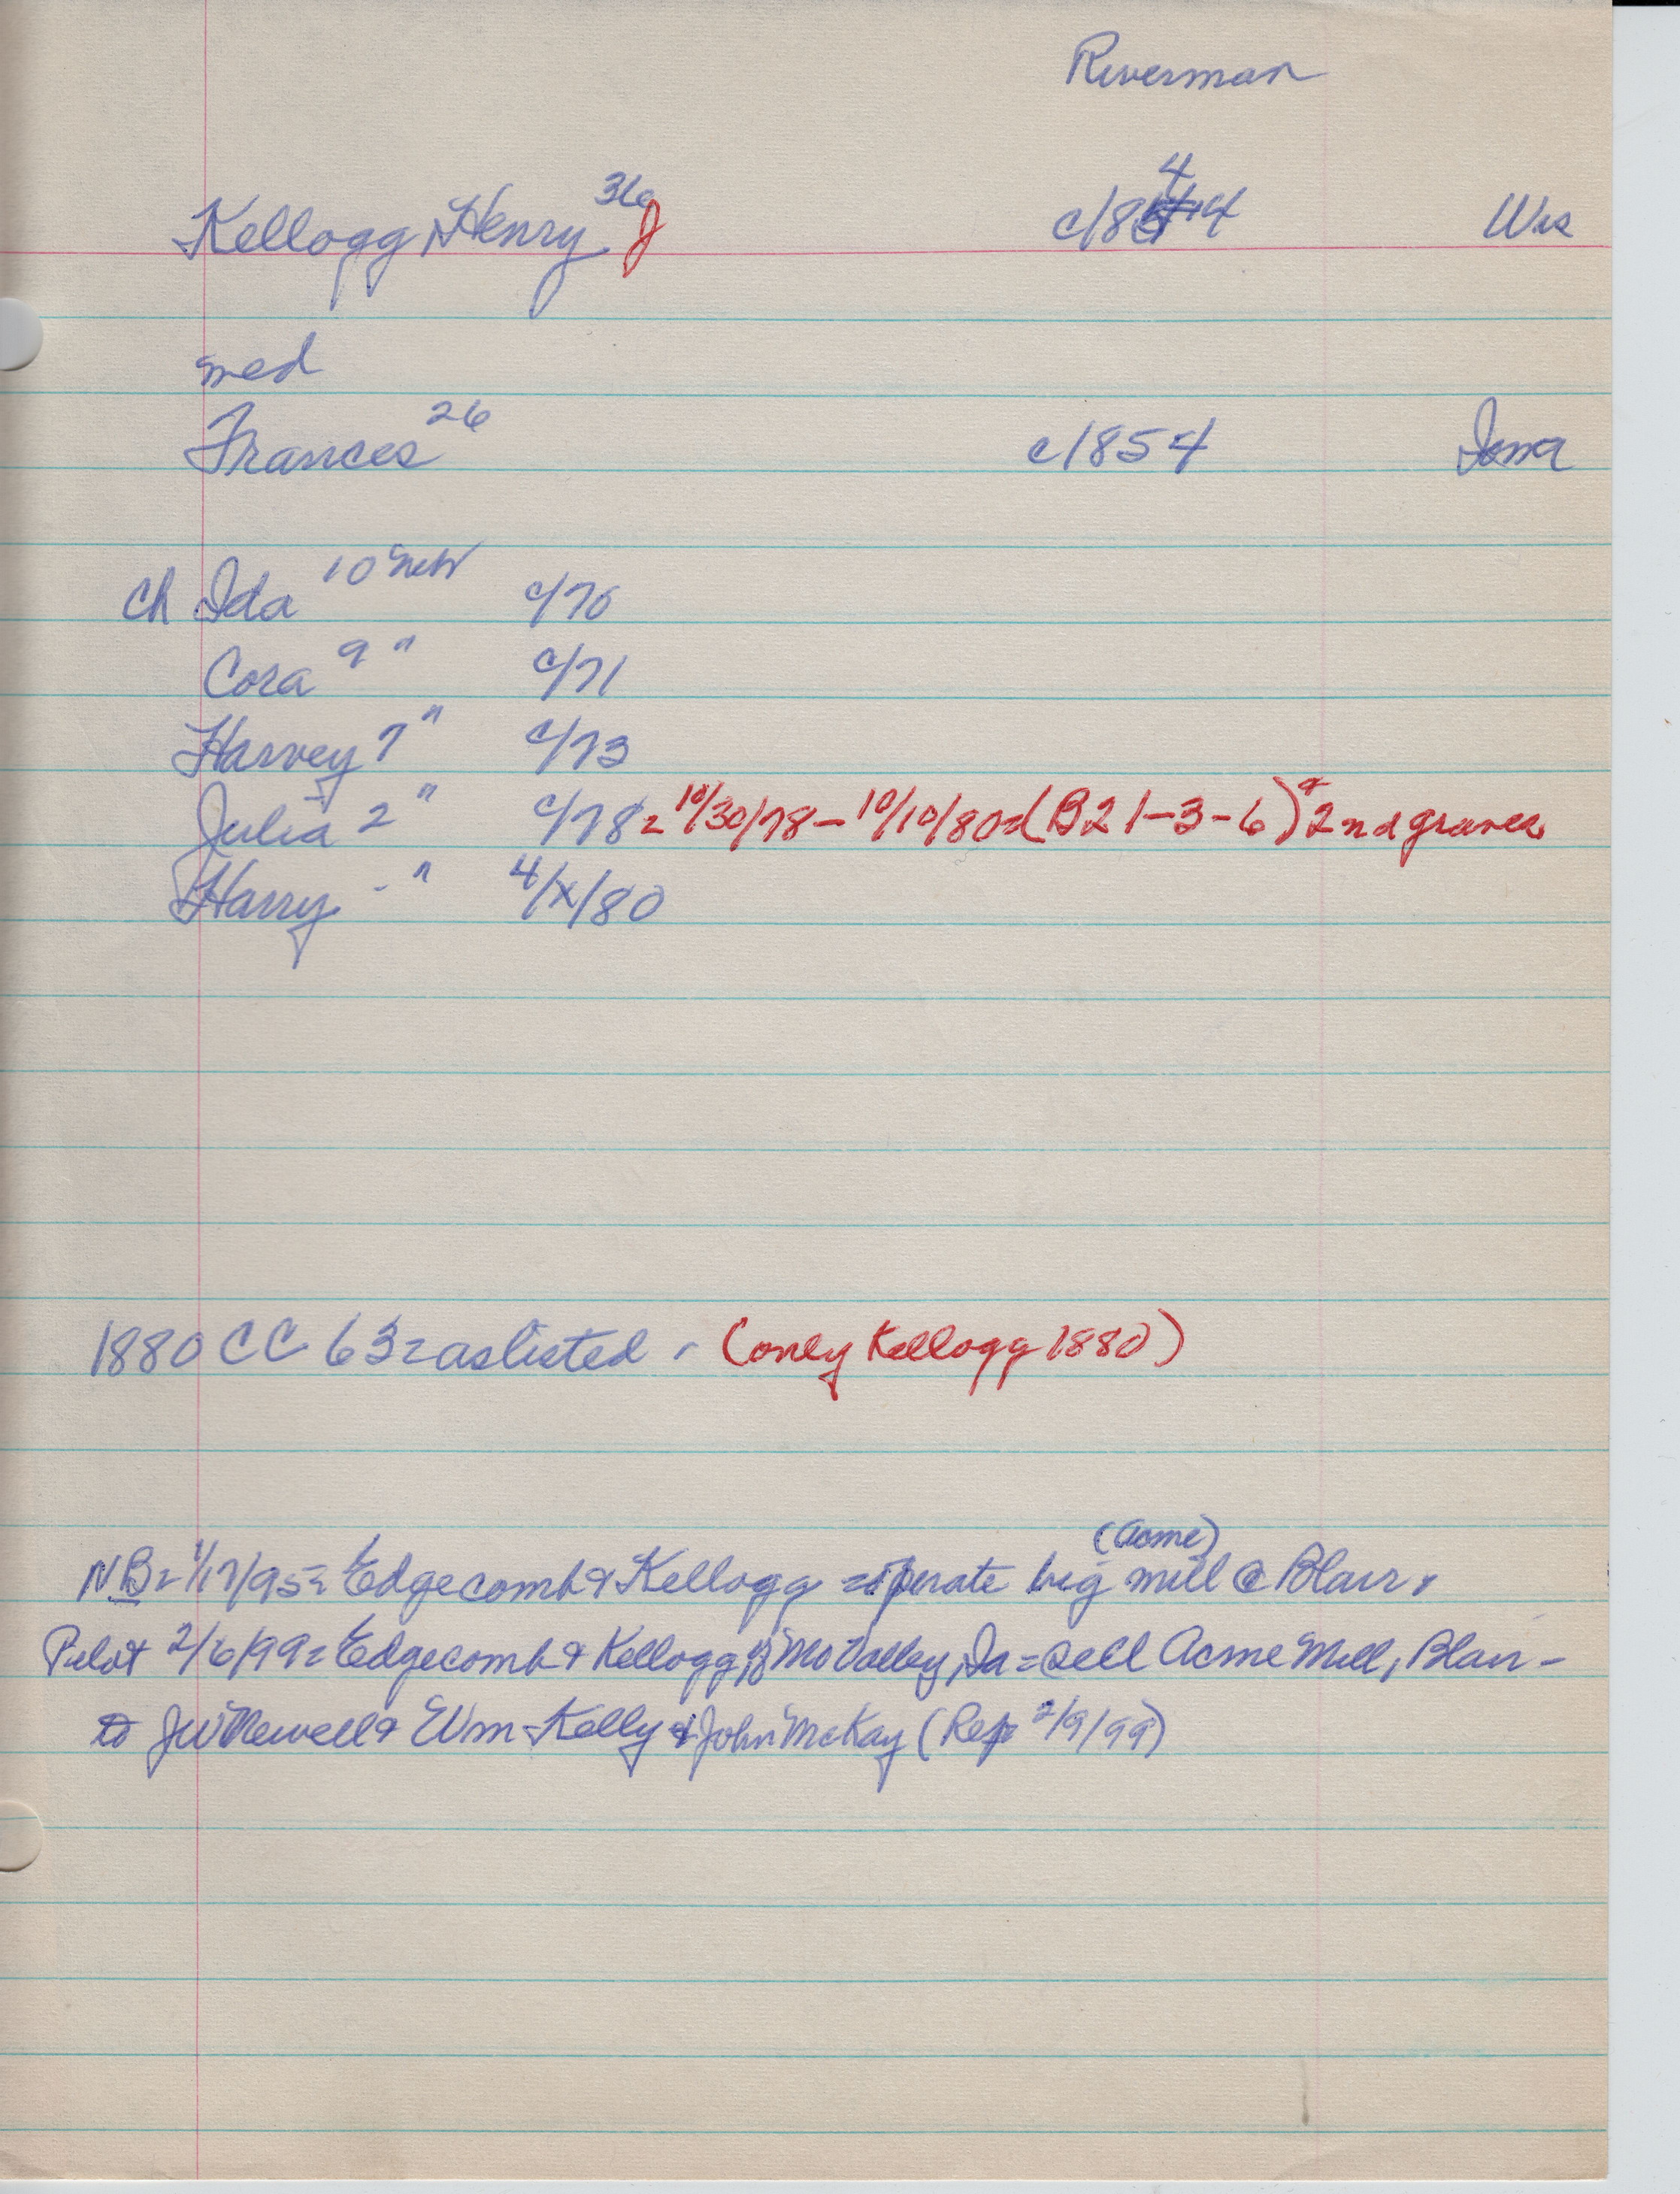 Riverman
Kellogg, Henry 36 J c/1844 Wis
med
Frances 26 c/1854 Iowa
ch Ida 10 neb c/70
Cora 9 " c/71
Harvey 7 " c/73
Julia 2 " c/78 = 10/30/78 - 10/10/80 = (B21-3-6) 2nd graves
Harry - " 4/x/80
1880 CC 63 = as listed - (only Kellogg 1880)
(Acme)
NB = 1/17/95 = Edgecomb & Kellogg = operate big mill @ Blair.
Pilot 2/6/99 = Edgecomb & Kellogg, Mo Valley, Ia = sell Acme Mill, Blair -
to JW Newell & Wm Kelly & John McKay (Rep 2/9/99)